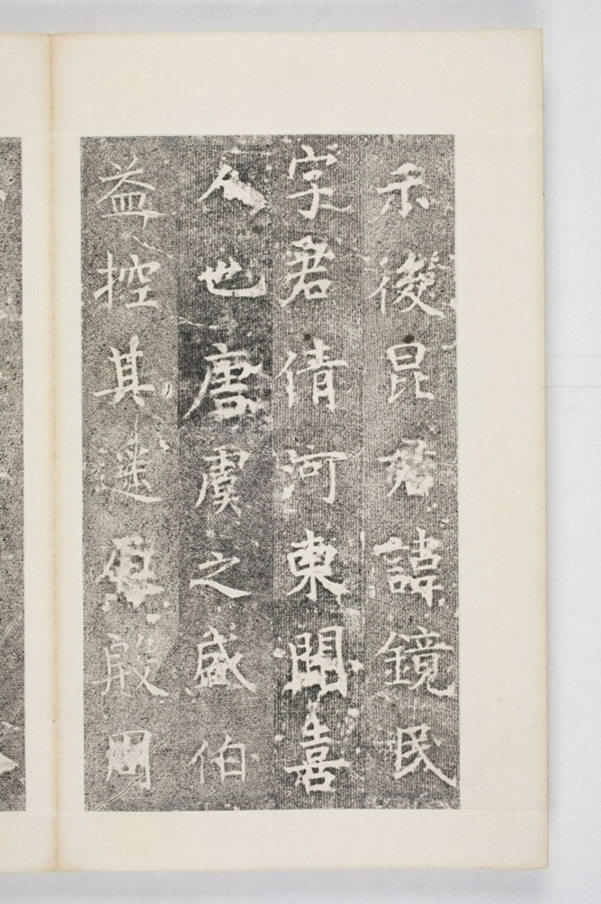 示後昆君諱鏡民
字君倩河東聞喜
人也唐虞之盛伯
益控其遥殷周